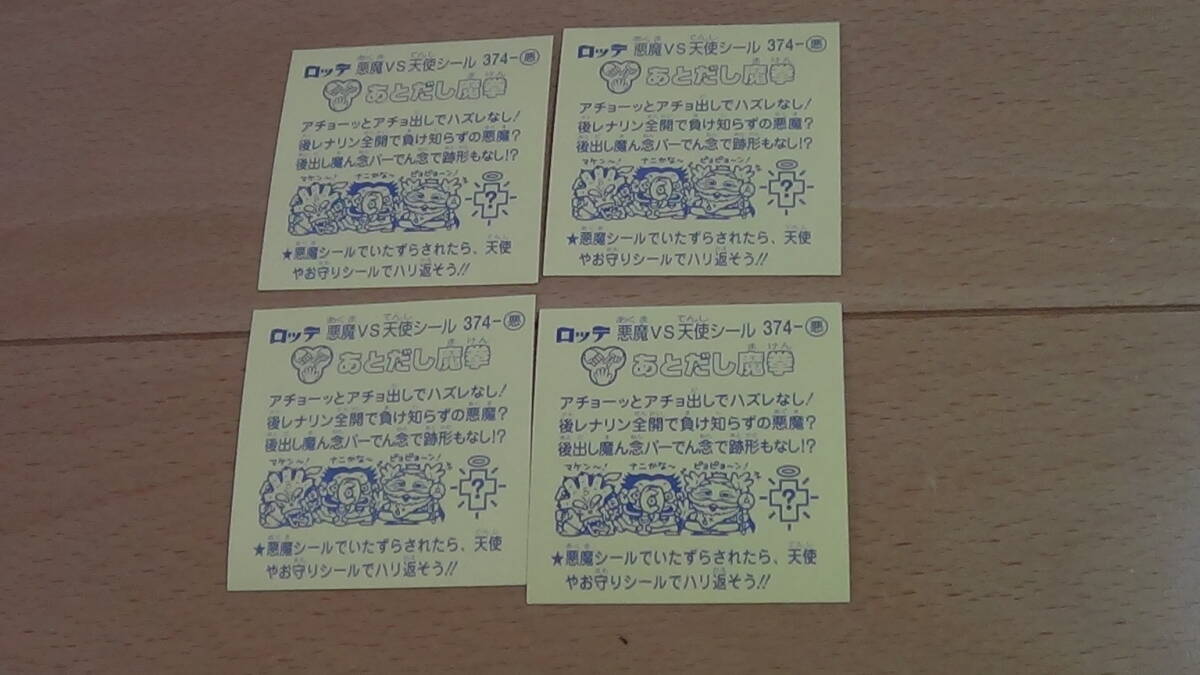 ロッテ 悪魔VS天使シール 374-悪
あとだし魔拳
アチョーッとアチョ出しでハズレなし!
後レナリン全開で負け知らずの悪魔?
後出し魔ん念バーでん念で跡形もなし!?
マケン〜! ナニかな〜 ピョピョーン!
?
★悪魔シールでいたずらされたら、天使
やお守りシールでハリ返そう!!
ロッテ 悪魔VS天使シール 374-悪
あとだし魔拳
アチョーッとアチョ出しでハズレなし!
後レナリン全開で負け知らずの悪魔?
後出し魔ん念バーでん念で跡形もなし!?
マケン〜! ナニかな〜 ピョピョーン!
?
★悪魔シールでいたずらされたら、天使
やお守りシールでハリ返そう!!
ロッテ 悪魔VS天使シール 374-悪
あとだし魔拳
アチョーッとアチョ出しでハズレなし!
後レナリン全開で負け知らずの悪魔?
後出し魔ん念バーでん念で跡形もなし!?
マケン〜! ナニかな〜 ピョピョーン!
?
★悪魔シールでいたずらされたら、天使
やお守りシールでハリ返そう!!
ロッテ 悪魔VS天使シール 374-悪
あとだし魔拳
アチョーッとアチョ出しでハズレなし!
後レナリン全開で負け知らずの悪魔?
後出し魔ん念バーでん念で跡形もなし!?
マケン〜! ナニかな〜 ピョピョーン!
?
★悪魔シールでいたずらされたら、天使
やお守りシールでハリ返そう!!